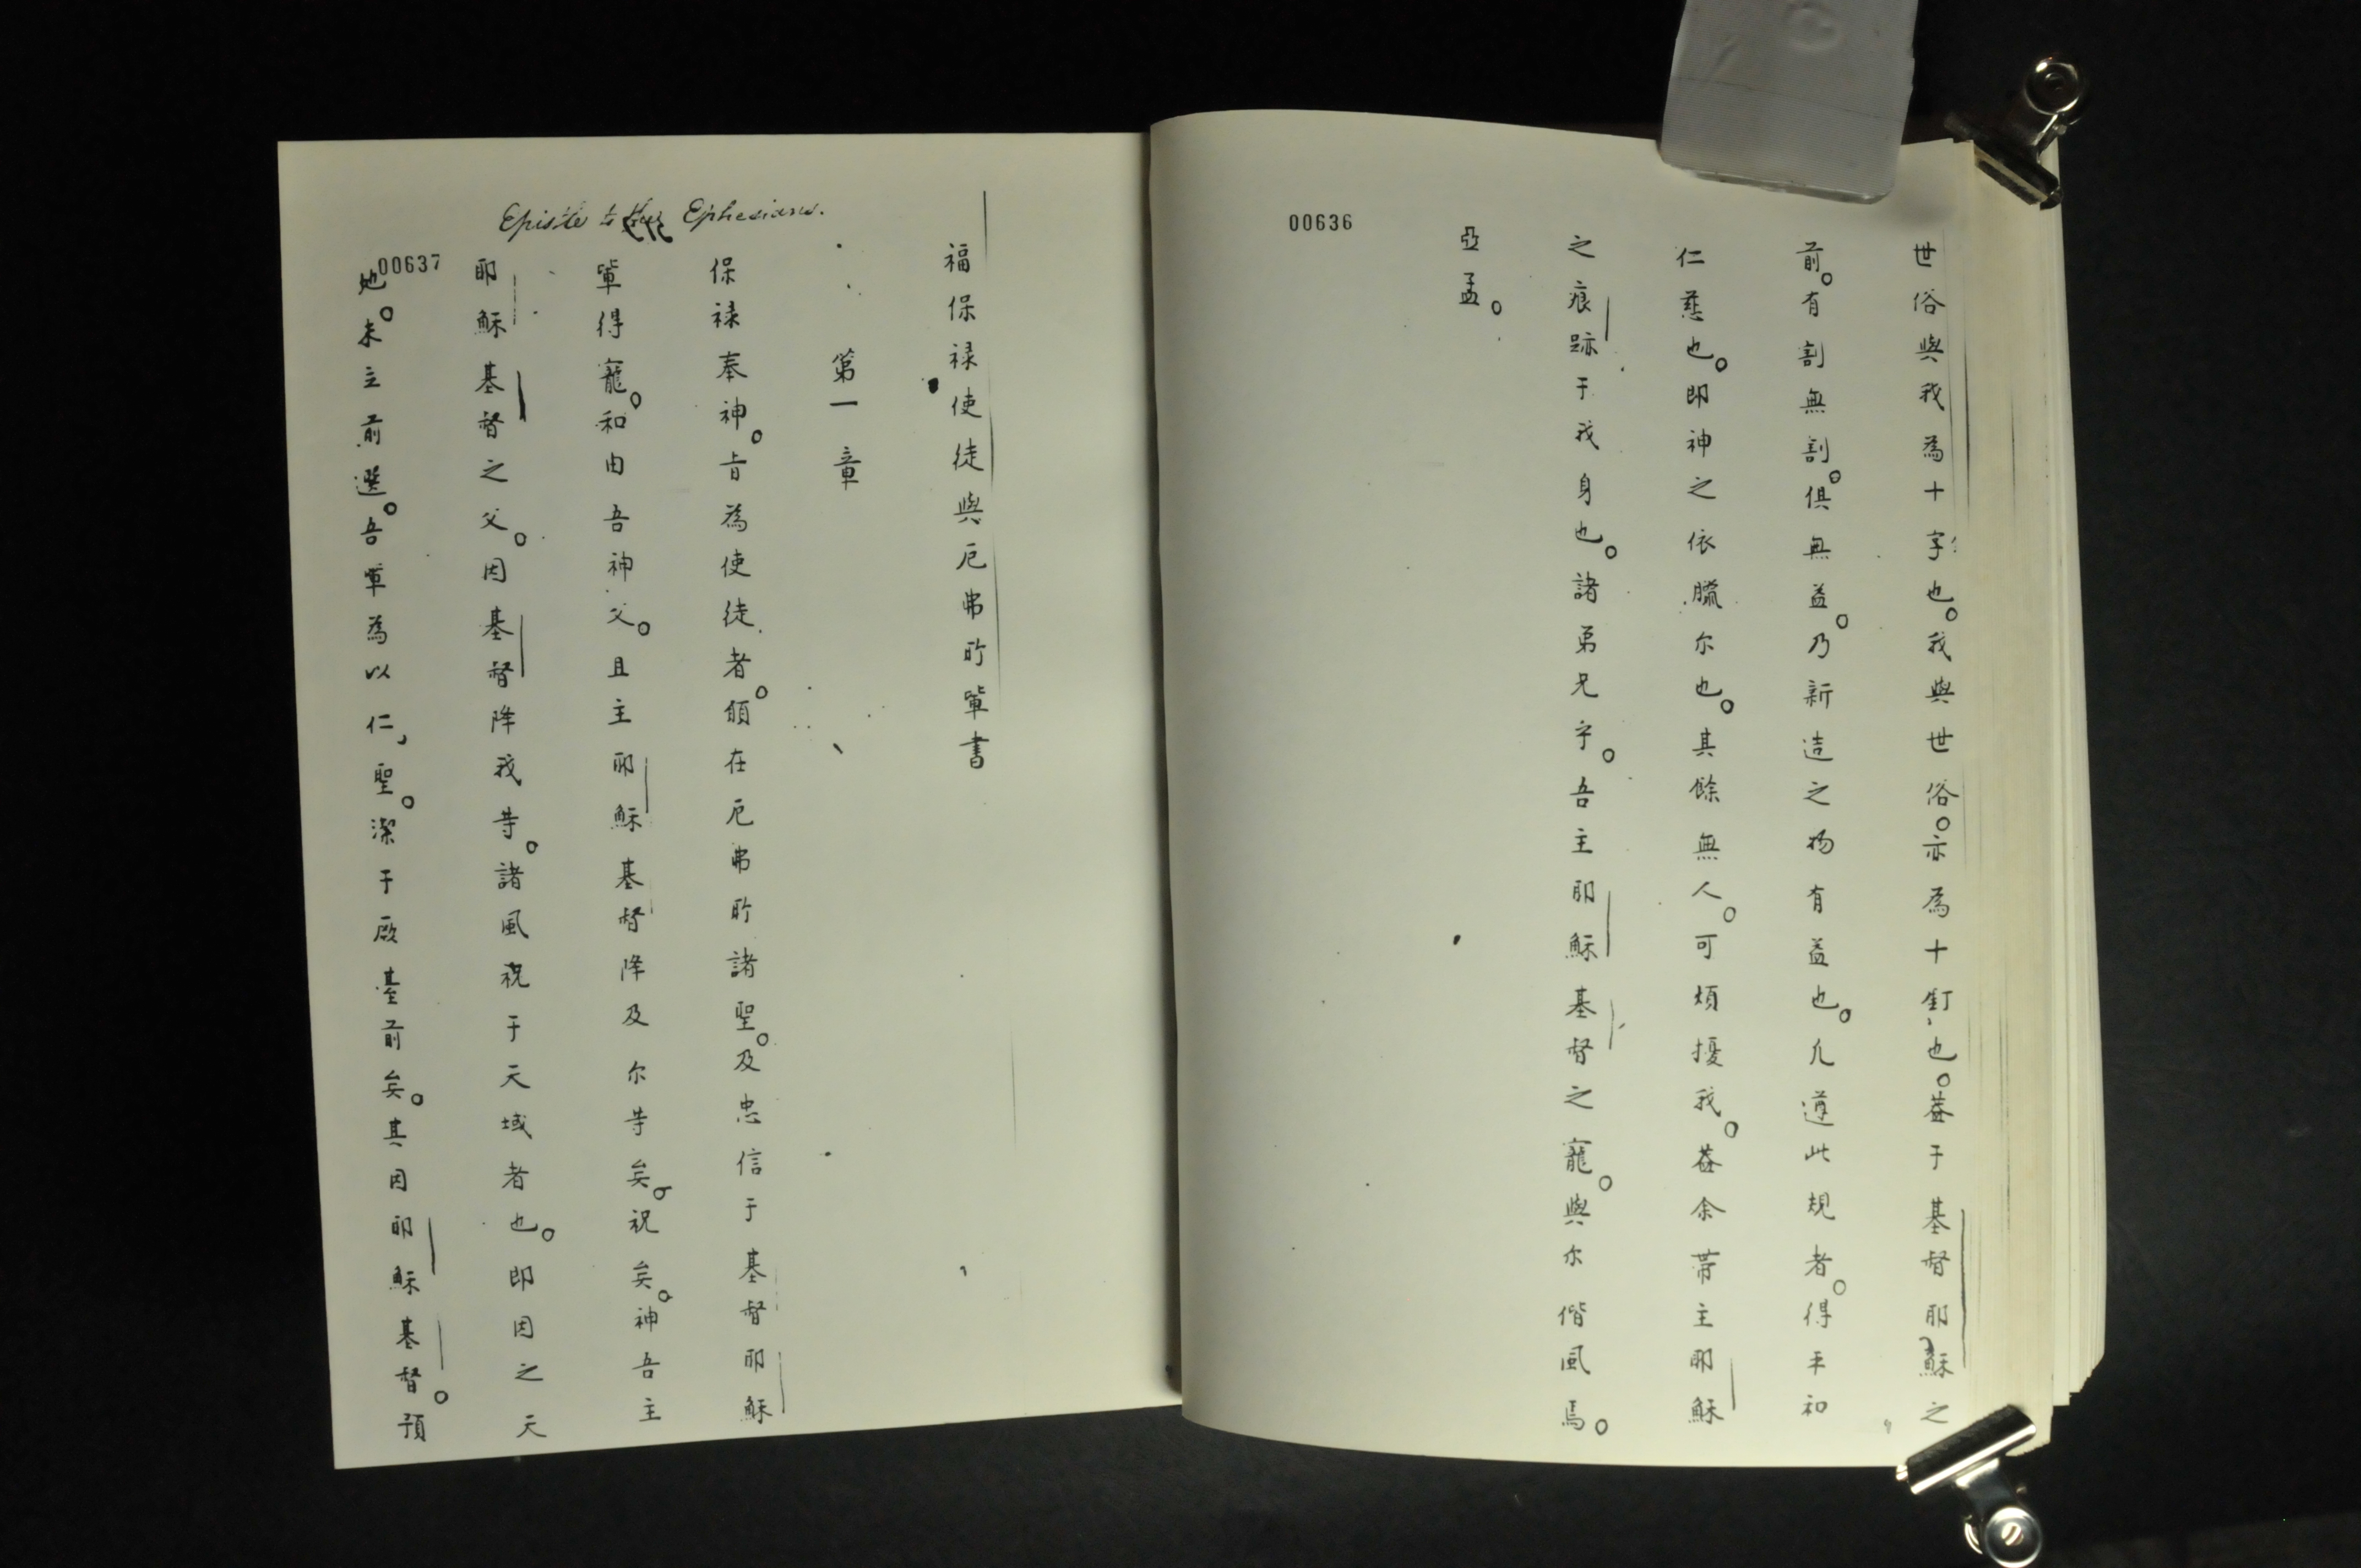 00636
世俗與我為十字也。我與世俗。亦為十釘也。蓋于基督耶穌之
前。有割無割。俱無益。乃新造之物有益也。凡遵此規者。得平和
仁慈也。即神之依臘尔也。其餘無人。可煩擾我。蓋余带主耶穌
之痕跡于我身也。諸弟兄乎。吾主耶穌基督之寵。與尔偕風焉。
亞孟。
Epistle to the Ephesians.
00637
福保禄使徒與厄弗所軰書
第一章
保禄奉神。旨為使徒者。頠在厄弗所諸聖。及忠信于基督耶穌
軰得寵。和由吾神父。且主耶穌基督降及尔等矣。祝矣。神吾主
耶穌基督之父。因基督降我等。諸風祝于天域者也。即因之天
地。未立前選。吾軰為以仁，聖。潔于厥臺前矣。其因耶穌基督。預